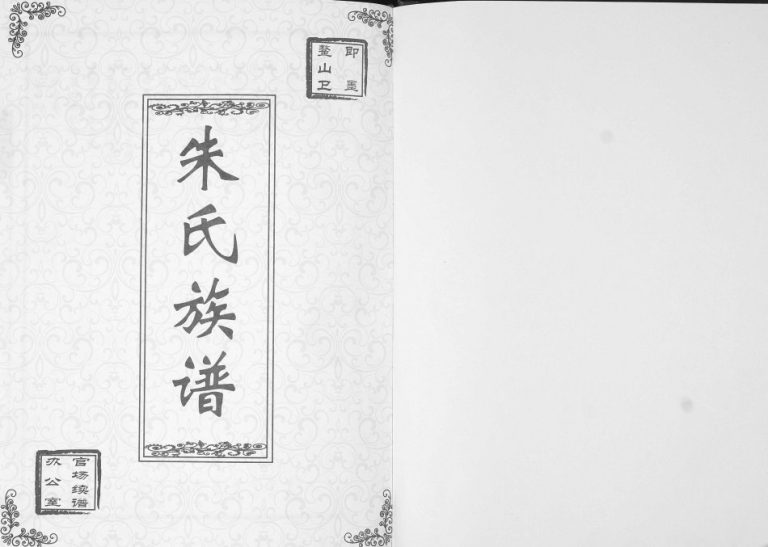 即墨
鳌山卫
朱氏族谱
官场续谱
办公室